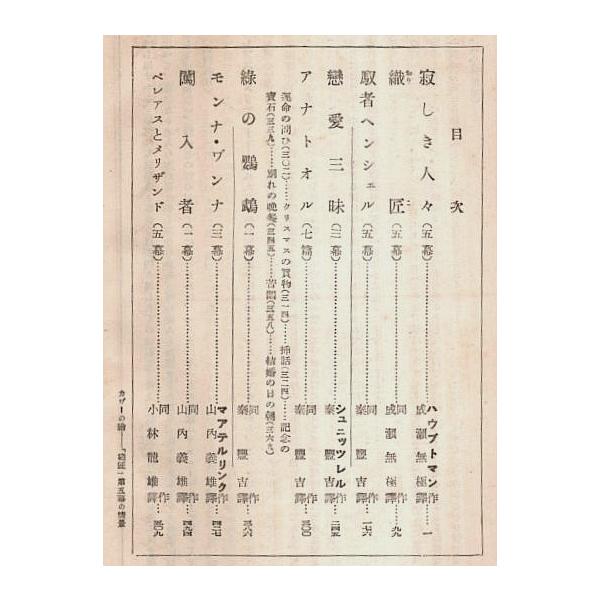 目次
寂しき人々(五幕)……ハウプトマン作 成瀬無極譯……一
織匠(五幕)……同作 成瀬無極譯……九九
馭者ヘンシェル(五幕)……同作 秦豐吉譯……一七六
戀愛三昧(三幕)……シュニッツレル作 秦豐吉譯……二四五
アナトオル(七篇)……同作 秦豐吉譯……三〇〇
運命の問ひ(三〇二)……クリスマスの買物(三一四)……挿話(三二四)……記念の
寶石(三三九)……別れの晩餐(三四五)……苦悶(三五八)……結婚の日の朝(三六九)
綠の鸚鵡(一幕)……同作 秦豐吉譯……三八六
モンナ・ヷンナ(三幕)……マアテルリンク作 山内義雄譯……四二七
闖入者(一幕)……同作 山内義雄譯……四九四
ペレアスとメリザンド(五幕)……同作 小林龍雄譯……五〇九
カヴーの繪——「織匠」第五幕の情景